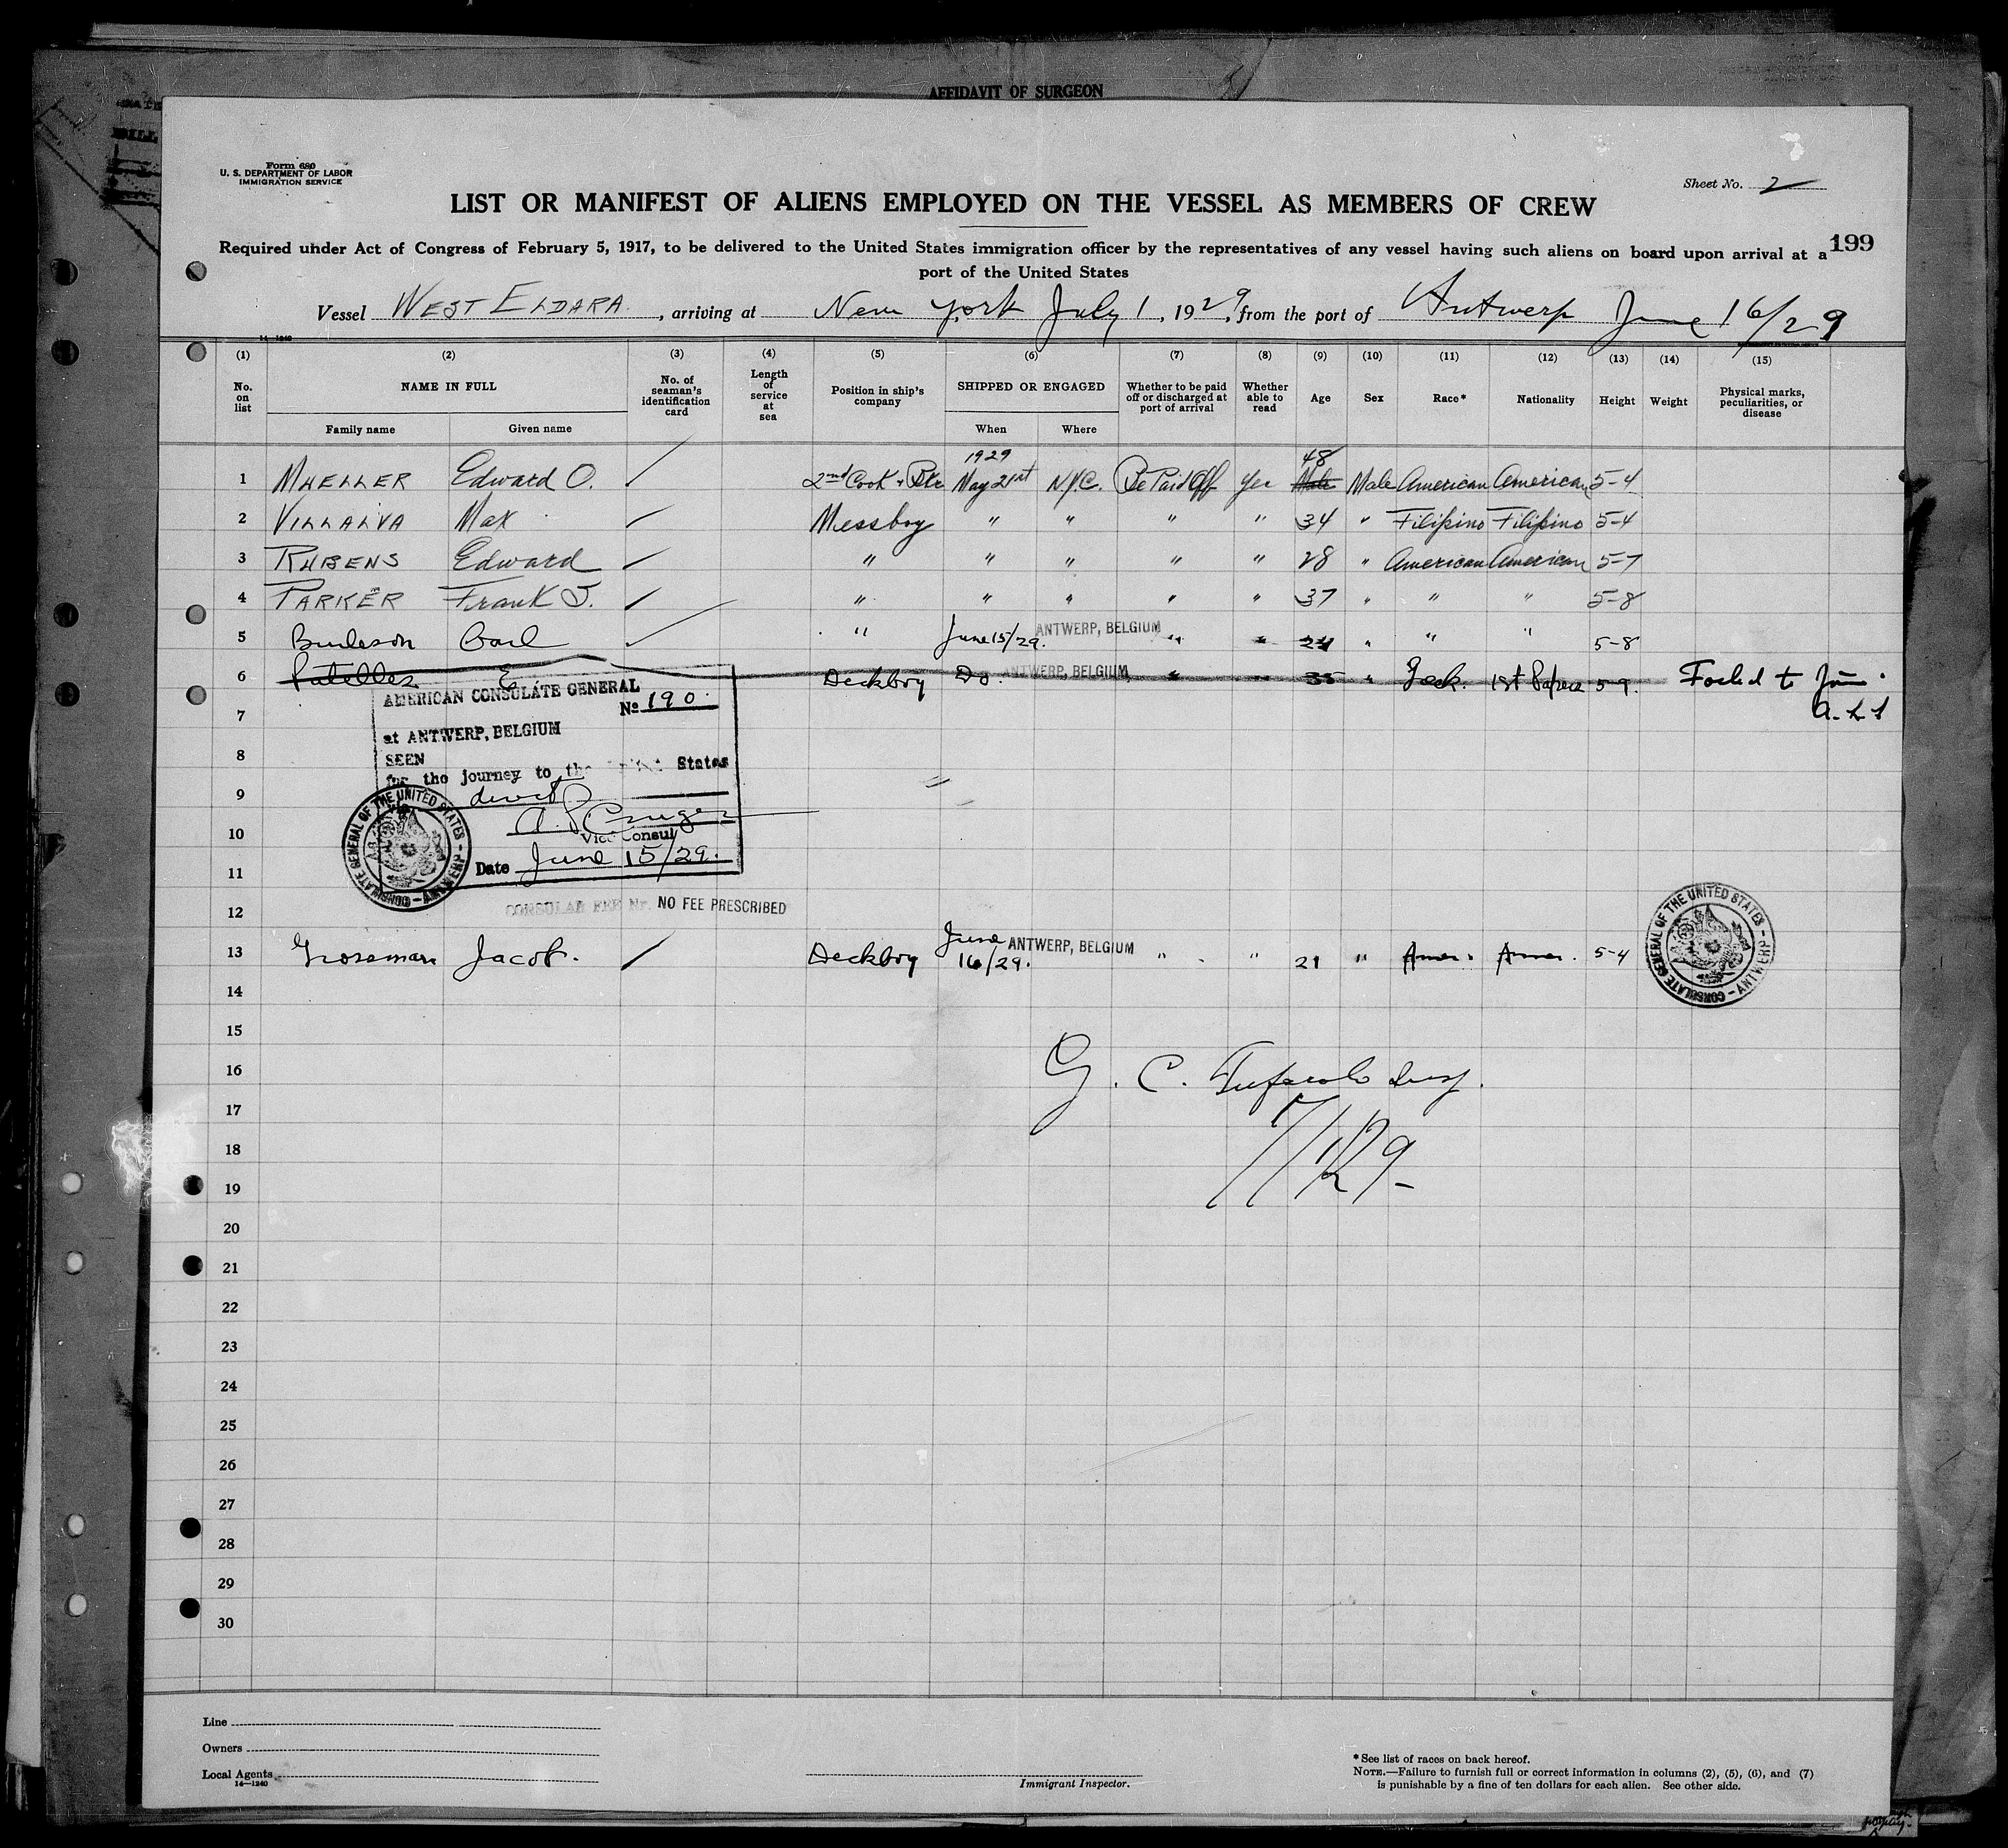 AFFIDAVIT OF SURGEON
Form 680
U. S. DEPARTMENT OF LABOR
IMMIGRATION SERVICE
Sheet No. 2
LIST OR MANIFEST OF ALIENS EMPLOYED ON THE VESSEL AS MEMBERS OF CREW
199
Required under Act of Congress of February 5, 1917, to be delivered to the United States immigration officer by the representatives of any vessel having such aliens on board upon arrival at a
port of the United States
Vessel WEST ELDARA, arriving at New York July 1, 1929, from the port of Antwerp June 16/29
14—1240
(1) (2) (3) (4) (5) (6) (7) (8) (9) (10) (11) (12) (13) (14) (15)
No. on list
NAME IN FULL
Family name Given name
No. of seaman's identification card
Length of service at sea
Position in ship's company
SHIPPED OR ENGAGED
When Where
Whether to be paid off or discharged at port of arrival
Whether able to read
Age
Sex
Race*
Nationality
Height
Weight
Physical marks, peculiarities, or disease
1929 48
1 MUELLER Edward O. 2nd Cook + Bkr May 21st N.Y.C. Be Paid Off yes Male Male American American 5-4
2 VILLALVA Max Messboy " " " " 34 " Filipino Filipino 5-4
3 RUBENS Edward " " " " " 28 " American American 5-7
4 PARKER Frank J. " " " " " 37 " " " 5-8
5 Burleson Carl " June 15/29. ANTWERP, BELGIUM " " 24 " " " 5-8
6 E. Deckboy Do. ANTWERP, BELGIUM " " 35 " 1st Papers 5-9. Failed to Join
7
8
9
10
11
12
AMERICAN CONSULATE GENERAL
No 190
at ANTWERP, BELGIUM
SEEN
for the journey to the States
direct
Vice Consul
Date June 15/29.
CONSULATE GENERAL OF THE UNITED STATES - ANTWERP -
CONSULAR FEE Nr. NO FEE PRESCRIBED
13 Grossman Jacob. Deckboy June 16/29. ANTWERP, BELGIUM " " 21 " Amer. Amer. 5-4
CONSULATE GENERAL OF THE UNITED STATES - ANTWERP -
14
15
16
G. C. Insp.
17
7/1/29
18
19
20
21
22
23
24
25
26
27
28
29
30
Line
Owners
Local Agents
14—1240
Immigrant Inspector.
*See list of races on back hereof.
NOTE.—Failure to furnish full or correct information in columns (2), (5), (6), and (7)
is punishable by a fine of ten dollars for each alien. See other side.